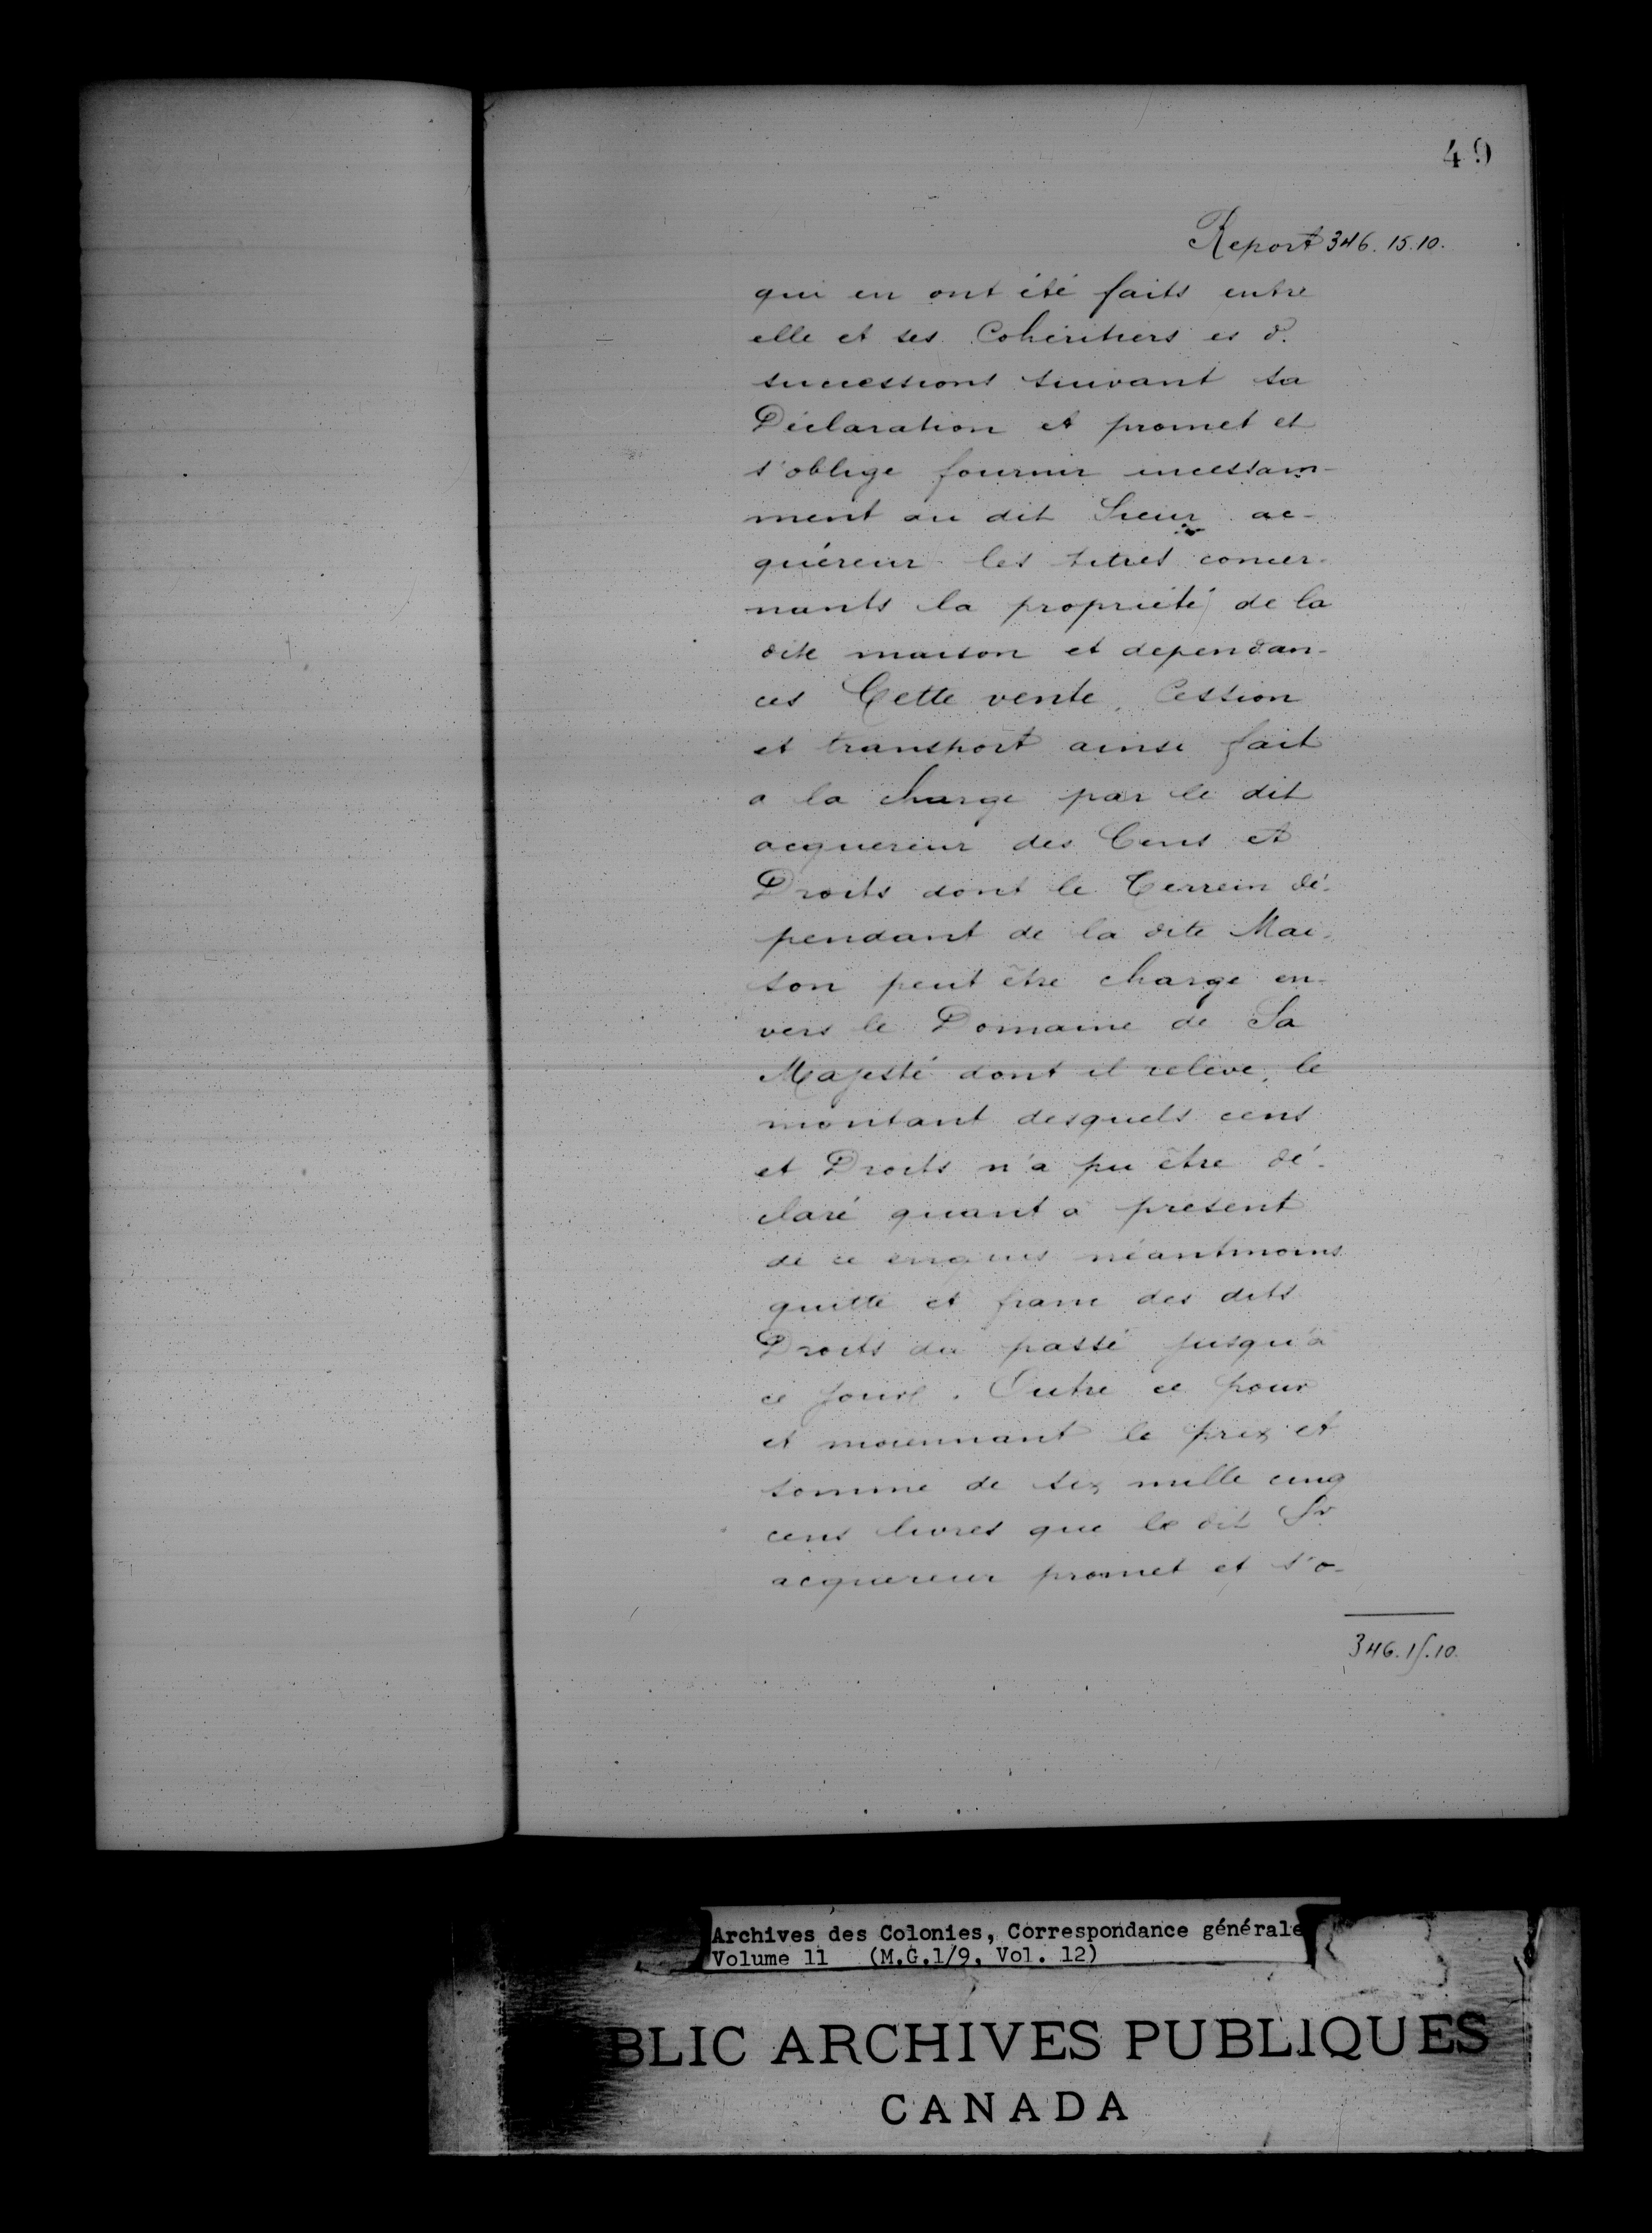 49
Report 346. 15. 10.
qui en ont été faits entre
elle et ses Cohéritiers es d.
successions suivant sa
Déclaration et promet et
s'oblige fournir incessam-
ment au dit Sieur ac-
quéreur les titres concer-
nants la propriété de la
dite maison et dependan-
ces Cette vente, Cession
et transport ainsi fait
a la charge par le dit
acquereur des Cens et
Droits dont le Terrein dé-
pendant de la dite Mai-
son peut être charge en-
vers le Domaine de Sa
Majesté dont il relève, le
montant desquels cens
et Droits n'a pu être dé-
claré quant a present
de ce enquis néantmoins
quitte et franc des dits
Droits du passé jusqu'à
ce jour. Outre ce pour
et moiennant le prix et
somme de six mille cinq
cens livres que le dit Sr
acquereur promet et s'o-
346. 15. 10.
Archives des Colonies, Correspondance générale
Volume 11 (M.G.1/9, Vol. 12)
BLIC ARCHIVES PUBLIQUES
CANADA